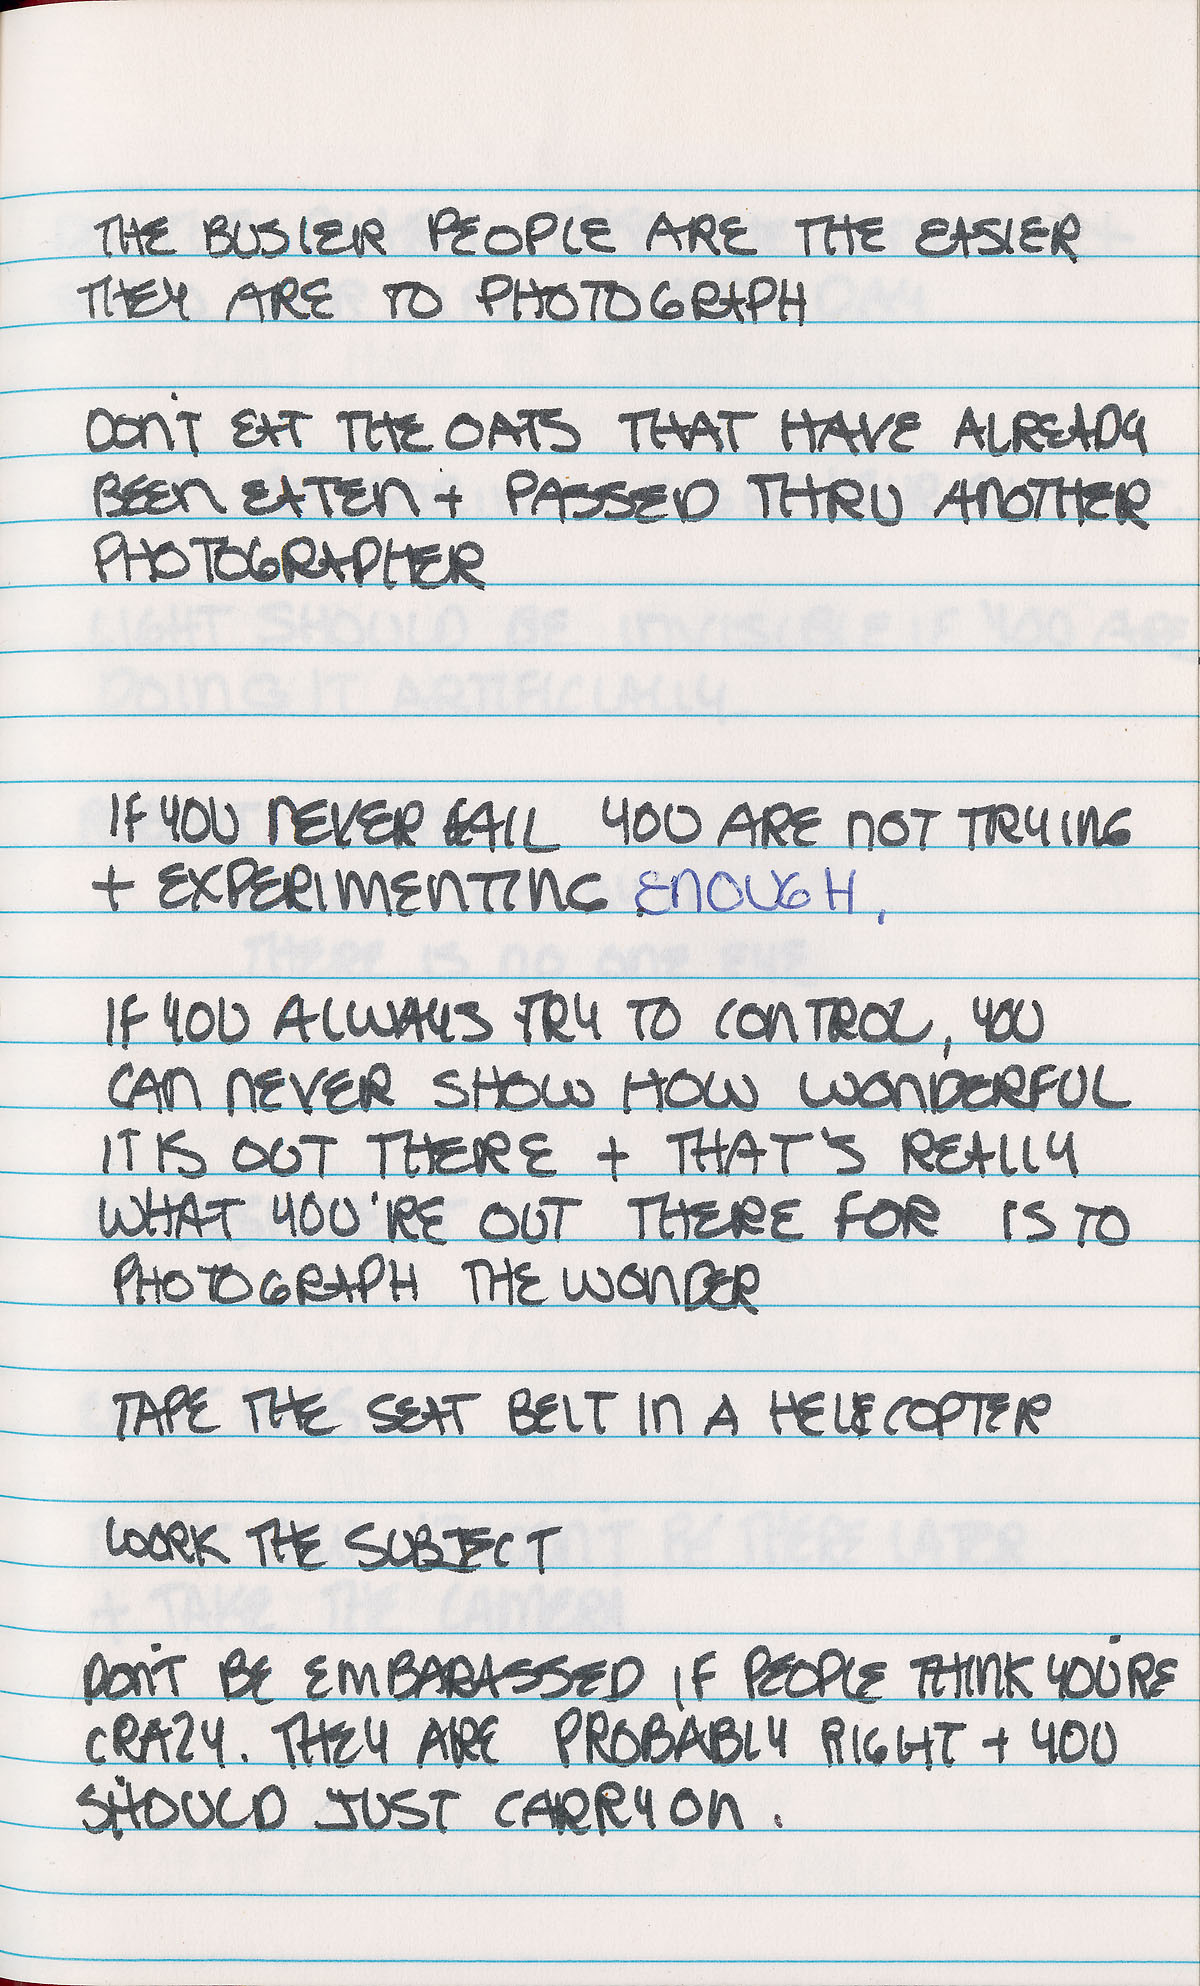 THE BUSIER PEOPLE ARE THE EASIER
THEY ARE TO PHOTOGRAPH
DON'T EAT THE OATS THAT HAVE ALREADY
BEEN EATEN + PASSED THRU ANOTHER
PHOTOGRAPHER
LIGHT SHOULD BE INVISIBLE IF YOU ARE
DOING IT ARTIFICIALLY
IF YOU NEVER FAIL YOU ARE NOT TRYING
+ EXPERIMENTING ENOUGH.
THERE IS NO ONE
IF YOU ALWAYS TRY TO CONTROL, YOU
CAN NEVER SHOW HOW WONDERFUL
IT IS OUT THERE + THAT'S REALLY
WHAT YOU'RE OUT THERE FOR IS TO
PHOTOGRAPH THE WONDER
TAPE THE SEAT BELT IN A HELECOPTER
WORK THE SUBJECT
+ TAKE THE CAMERA
DON'T BE EMBARASSED IF PEOPLE THINK YOU'RE
CRAZY. THEY ARE PROBABLY RIGHT + YOU
SHOULD JUST CARRY ON.